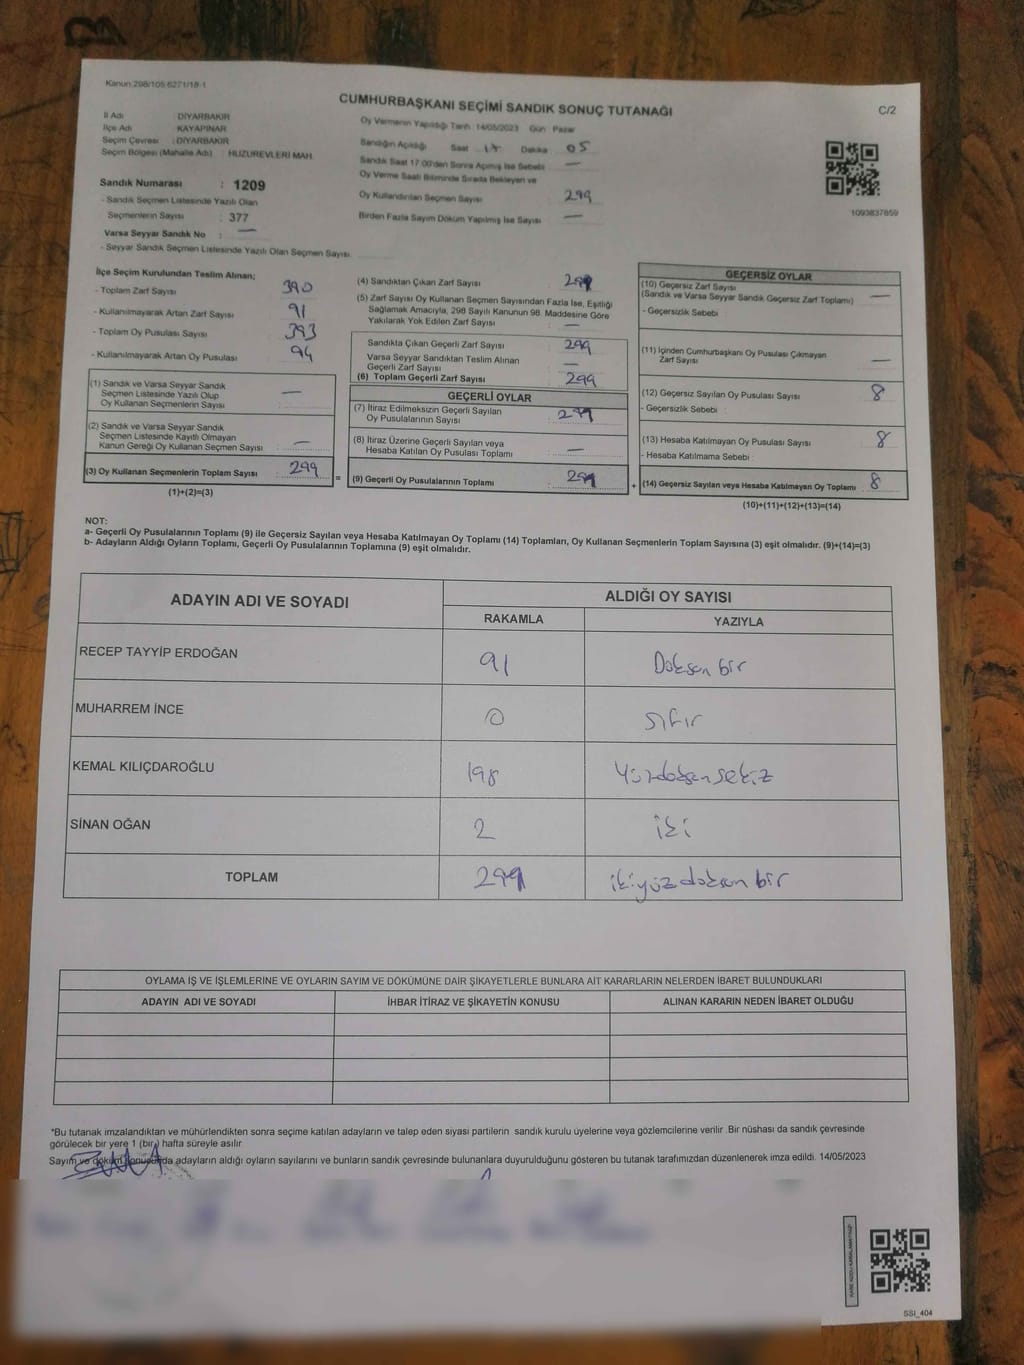 Kanun:298/105 6271/18-1
CUMHURBAŞKANI SEÇİMİ SANDIK SONUÇ TUTANAĞI
C/2
İl Adı : DİYARBAKIR
İlçe Adı : KAYAPINAR
Seçim Çevresi : DİYARBAKIR
Seçim Bölgesi (Mahalle Adı) : HUZUREVLERİ MAH.
Sandık Numarası : 1209
- Sandık Seçmen Listesinde Yazılı Olan
Seçmenlerin Sayısı : 377
Varsa Seyyar Sandık No : —
- Seyyar Sandık Seçmen Listesinde Yazılı Olan Seçmen Sayısı:
Oy Vermenin Yapıldığı Tarih: 14/05/2023 Gün: Pazar
Sandığın Açıldığı Saat Dakika 05
Sandık Saat 17:00'den Sonra Açılmış İse Sebebi : —
Oy Verme Saati Bitiminde Sırada Bekleyen ve
Oy Kullandırılan Seçmen Sayısı : 299
Birden Fazla Sayım Döküm Yapılmış İse Sayısı : —
1093837859
İlçe Seçim Kurulundan Teslim Alınan;
- Toplam Zarf Sayısı : 390
- Kullanılmayarak Artan Zarf Sayısı : 91
- Toplam Oy Pusulası Sayısı : 393
- Kullanılmayarak Artan Oy Pusulası : 94
(1) Sandık ve Varsa Seyyar Sandık
Seçmen Listesinde Yazılı Olup
Oy Kullanan Seçmenlerin Sayısı : —
(2) Sandık ve Varsa Seyyar Sandık
Seçmen Listesinde Kayıtlı Olmayan
Kanun Gereği Oy Kullanan Seçmen Sayısı : —
(3) Oy Kullanan Seçmenlerin Toplam Sayısı : 299 =
(1)+(2)=(3)
(4) Sandıktan Çıkan Zarf Sayısı : 299
(5) Zarf Sayısı Oy Kullanan Seçmen Sayısından Fazla İse, Eşitliği
Sağlamak Amacıyla, 298 Sayılı Kanunun 98. Maddesine Göre
Yakılarak Yok Edilen Zarf Sayısı : —
Sandıkta Çıkan Geçerli Zarf Sayısı : 299
Varsa Seyyar Sandıktan Teslim Alınan
Geçerli Zarf Sayısı : —
(6) Toplam Geçerli Zarf Sayısı : 299
GEÇERLİ OYLAR
(7) İtiraz Edilmeksizin Geçerli Sayılan
Oy Pusulalarının Sayısı :
(8) İtiraz Üzerine Geçerli Sayılan veya
Hesaba Katılan Oy Pusulası Toplamı : —
(9) Geçerli Oy Pusulalarının Toplamı : +
GEÇERSİZ OYLAR
(10) Geçersiz Zarf Sayısı : —
(Sandık ve Varsa Seyyar Sandık Geçersiz Zarf Toplamı)
- Geçersizlik Sebebi
(11) İçinden Cumhurbaşkanı Oy Pusulası Çıkmayan
Zarf Sayısı : —
(12) Geçersiz Sayılan Oy Pusulası Sayısı : 8
- Geçersizlik Sebebi :
(13) Hesaba Katılmayan Oy Pusulası Sayısı : 8
- Hesaba Katılmama Sebebi :
(14) Geçersiz Sayılan veya Hesaba Katılmayan Oy Toplamı : 8
(10)+(11)+(12)+(13)=(14)
NOT:
a- Geçerli Oy Pusulalarının Toplamı (9) ile Geçersiz Sayılan veya Hesaba Katılmayan Oy Toplamı (14) Toplamları, Oy Kullanan Seçmenlerin Toplam Sayısına (3) eşit olmalıdır. (9)+(14)=(3)
b- Adayların Aldığı Oyların Toplamı, Geçerli Oy Pusulalarının Toplamına (9) eşit olmalıdır.
ADAYIN ADI VE SOYADI
ALDIĞI OY SAYISI
RAKAMLA YAZIYLA
RECEP TAYYİP ERDOĞAN 91 Doksan bir
MUHARREM İNCE 0 sıfır
KEMAL KILIÇDAROĞLU 198 Yüzdoksansekiz
SİNAN OĞAN 2 iki
TOPLAM ikiyüzdoksan bir
OYLAMA İŞ VE İŞLEMLERİNE VE OYLARIN SAYIM VE DÖKÜMÜNE DAİR ŞİKAYETLERLE BUNLARA AİT KARARLARIN NELERDEN İBARET BULUNDUKLARI
ADAYIN ADI VE SOYADI İHBAR İTİRAZ VE ŞİKAYETİN KONUSU ALINAN KARARIN NEDEN İBARET OLDUĞU
*Bu tutanak imzalandıktan ve mühürlendikten sonra seçime katılan adayların ve talep eden siyasi partilerin sandık kurulu üyelerine veya gözlemcilerine verilir .Bir nüshası da sandık çevresinde
görülecek bir yere 1 (bir) hafta süreyle asılır.
Sayım ve döküm sonucunda adayların aldığı oyların sayılarını ve bunların sandık çevresinde bulunanlara duyurulduğunu gösteren bu tutanak tarafımızdan düzenlenerek imza edildi. 14/05/2023
SSI_404